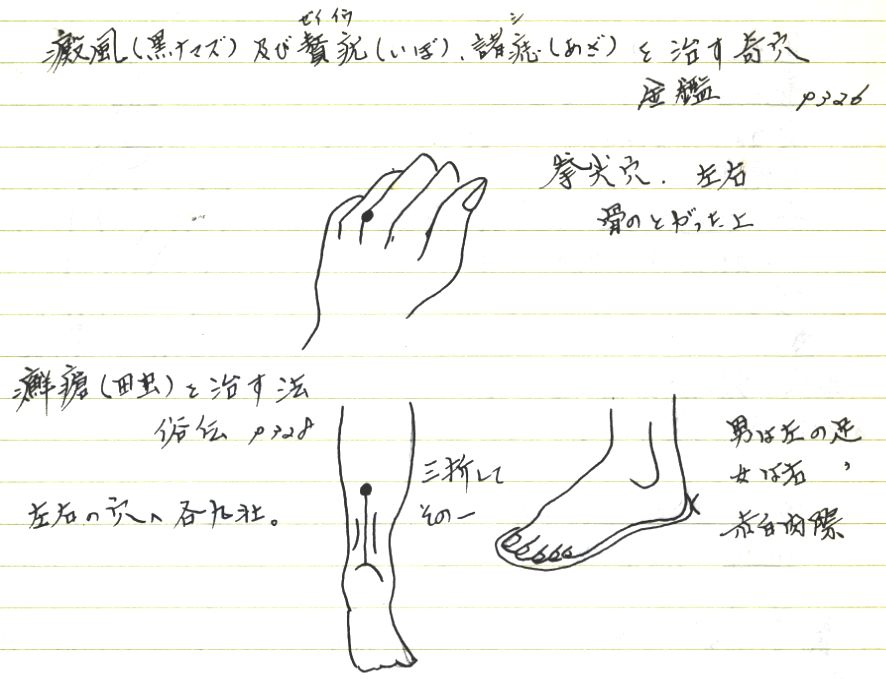 ゼイ イウ シ
癜風(黒ナマズ)及び贅疣(いぼ)、諸痣(あざ)を治す奇穴
金鑑 p326
拳尖穴. 左右
骨のとがった上
癬瘡(田虫)を治す法
俗伝 p328
左右の穴へ各九壮。
三折して
その一
男は左の足
女は右 〃
赤白肉際